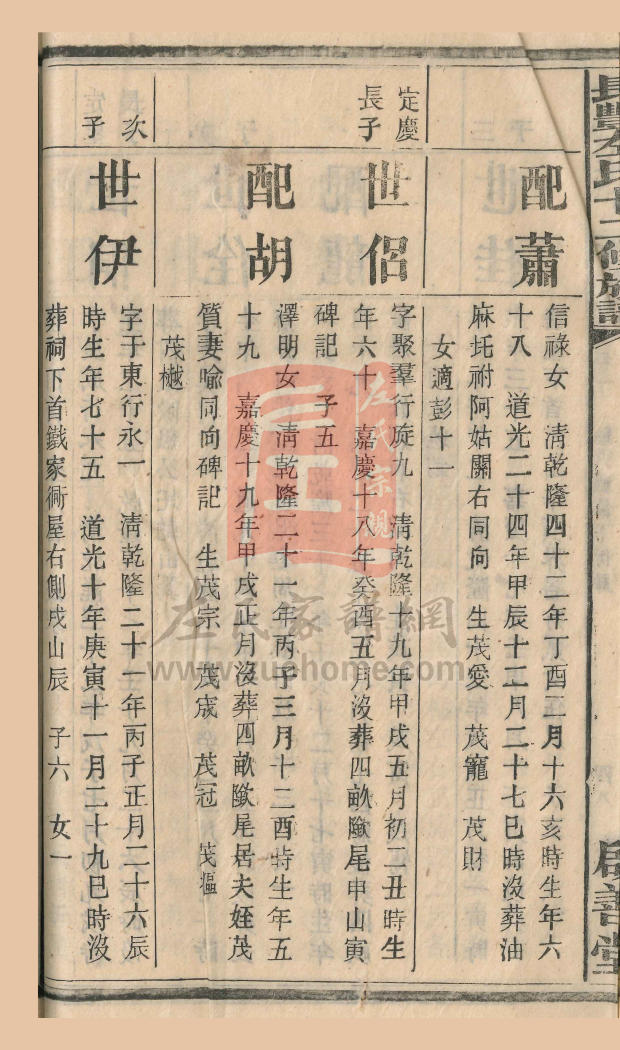 長豐左氏十二修族譜
啟善堂
配蕭
信祿女　清乾隆四十二年丁酉三月十六亥時生年六
十八　道光二十四年甲辰十二月二十七巳時沒葬油
麻坵祔阿姑關右同向　生茂愛　茂寵　茂財
女適彭十一
定慶
長子
世侶
字聚羣行旋九　清乾隆十九年甲戌五月初二丑時生
年六十　嘉慶十八年癸酉五月沒葬四畝墩尾甲山寅
碑記　子五
配胡
澤明女　清乾隆二十一年丙子三月十二酉時生年五
十九　嘉慶十九年甲戌正月沒葬四畝墩尾居夫姪茂
質妻喻同向碑記　生茂宗　茂宬　茂冠　茂樞
茂樾
次
子
世伊
字于東行永一　清乾隆二十一年丙子正月二十六辰
時生年七十五　道光十年庚寅十一月二十九巳時沒
葬祠下首鐵家衕屋右側戌山辰　子六　女一
左氏宗親
左氏家譜網
www.zuohome.com